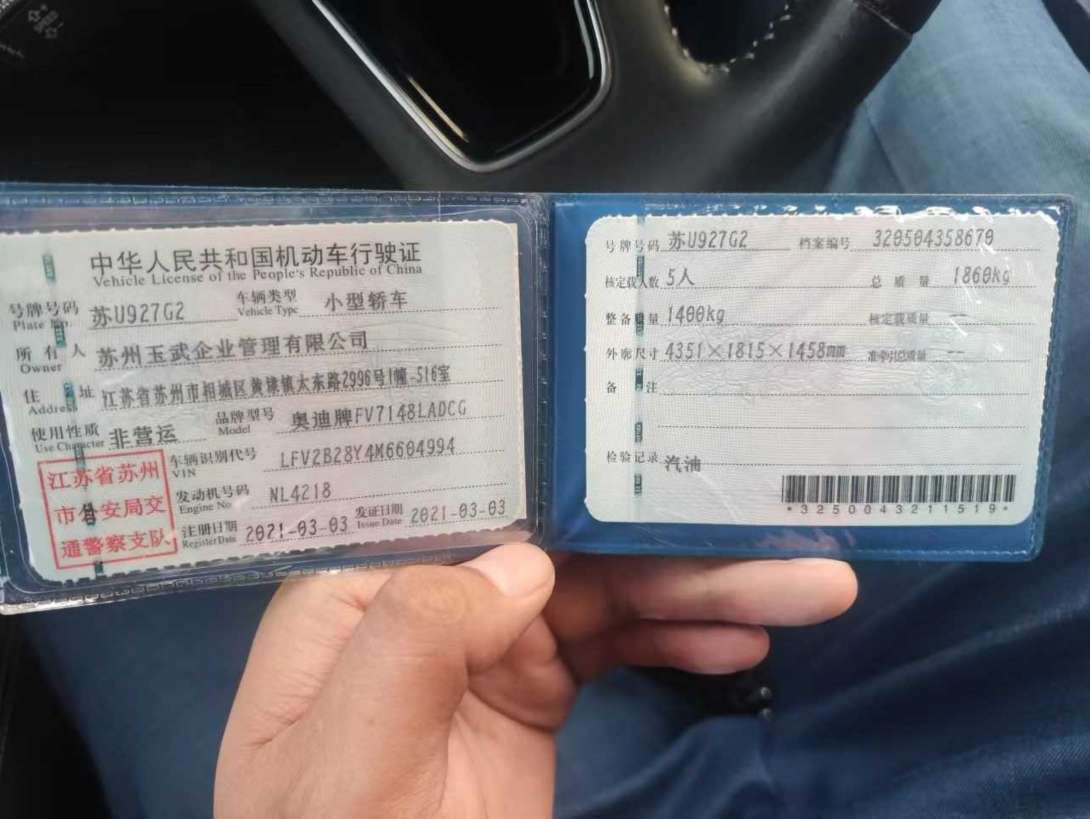 中华人民共和国机动车行驶证
Vehicle License of the People's Republic of China
号牌号码 苏U927G2 车辆类型 小型轿车
Plate No. Vehicle Type
所有人 苏州玉武企业管理有限公司
Owner
住址 江苏省苏州市相城区黄埭镇太东路2996号1幢-516室
Address
使用性质 非营运 品牌型号 奥迪牌FV7148LADCG
Use Character Model
车辆识别代号 LFV2B28Y4M6604994
VIN
发动机号码 NL4218
Engine No
注册日期 2021-03-03 发证日期 2021-03-03
Register Date Issue Date
江苏省苏州
市公安局交
通警察支队
号牌号码 苏U927G2 档案编号 320504358670
核定载人数 5人 总质量 1860kg
整备质量 1400kg 核定载质量 --
外廓尺寸 4351×1815×1458mm 准牵引总质量 --
备注
检验记录 汽油
*3250043211519*